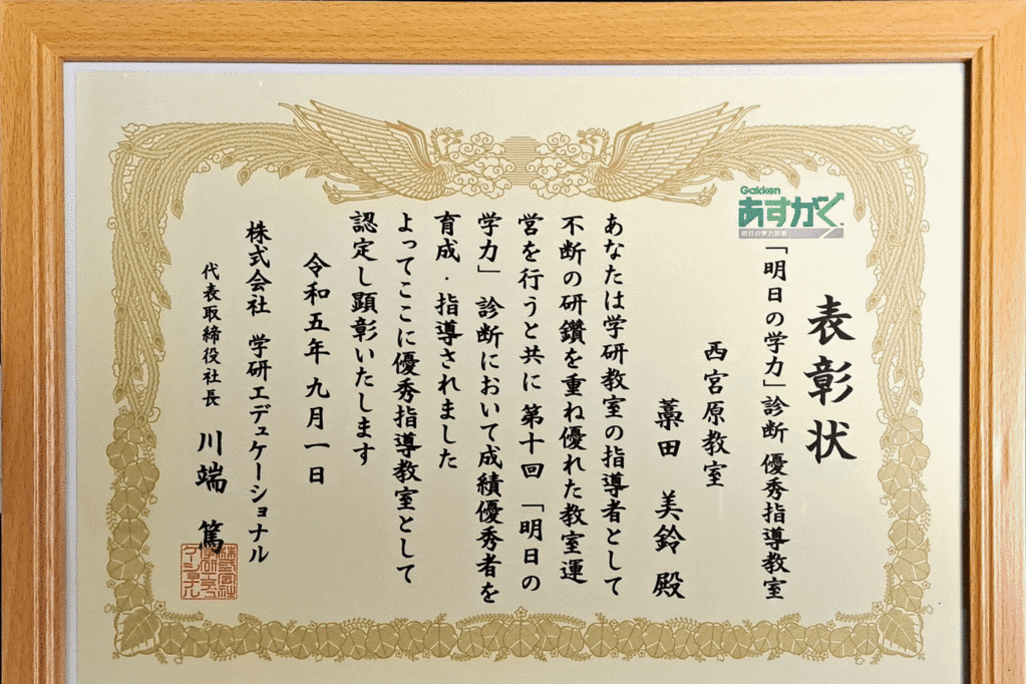 表彰状
Gakken
あすがく
明日の学力診断
「明日の学力」診断 優秀指導教室
西宮原教室
藁田 美鈴 殿
あなたは学研教室の指導者として
不断の研鑽を重ね優れた教室運
営を行うと共に 第十回 「明日の
学力」 診断において成績優秀者を
育成・指導されました
よってここに優秀指導教室として
認定し顕彰いたします
令和五年 九月一日
株式会社 学研エデュケーショナル
代表取締役社長 川端 篤